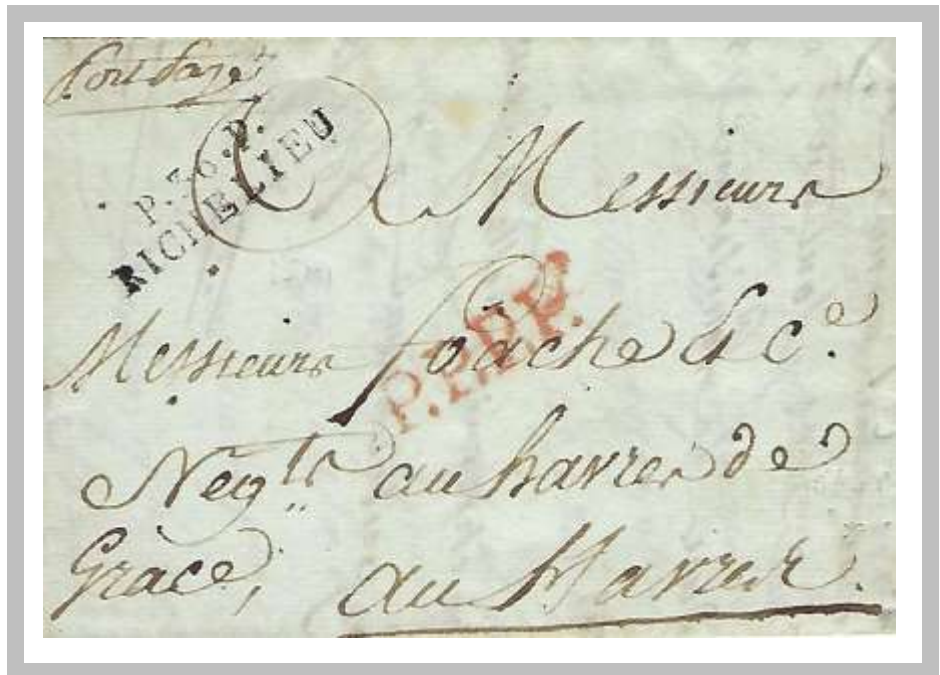 Port payé
P.36.P.
RICHELIEU
Messieurs
P.P.P.P.
Messieurs foäche & C.e
Neg.ts au havre de
Grace, au Havre.